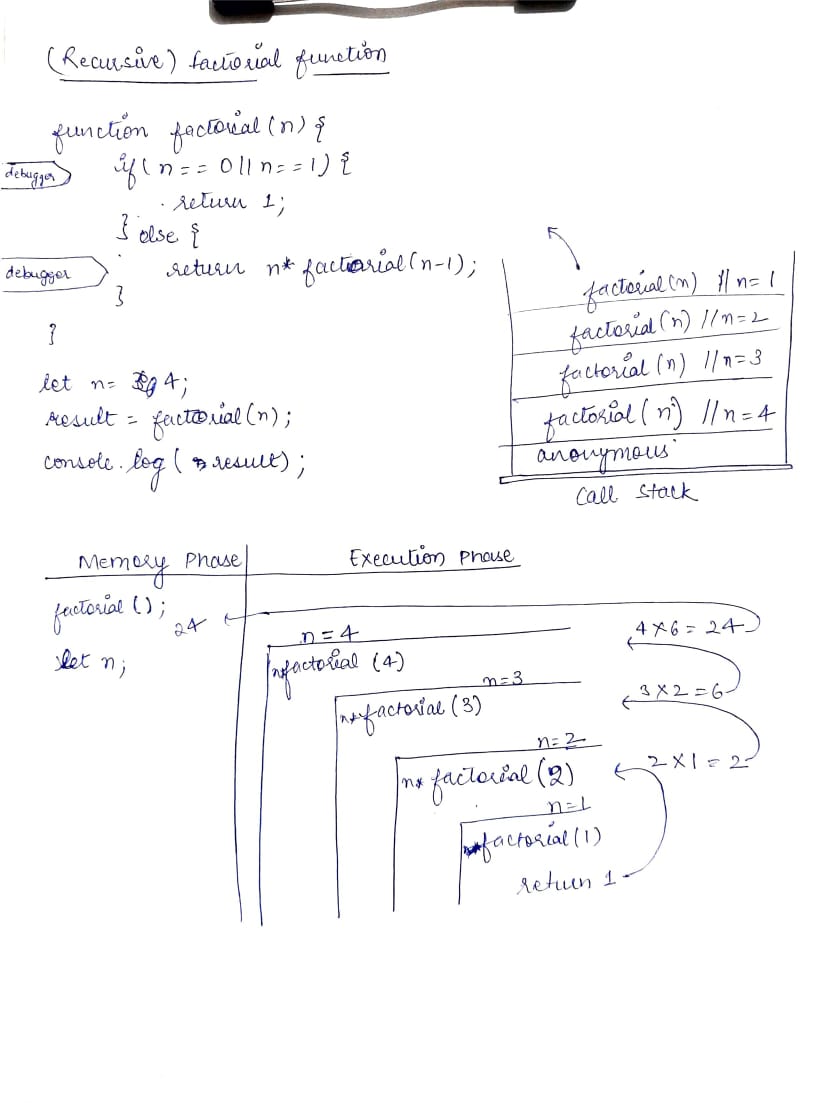 (Recursive) factorial function
function factorial(n) {
debugger
if( n == 0 || n == 1) {
return 1;
} else {
debugger
return n* factorial(n-1);
}
}
let n= 4;
result = factorial(n);
console.log( result);
factorial(n) // n=1
factorial(n) // n=2
factorial(n) // n=3
factorial(n) // n=4
anonymous
Call Stack
Memory Phase
Execution Phase
factorial();
24
let n;
n=4
n*factorial (4)
4 x 6 = 24
n=3
n*factorial(3)
3 x 2 = 6
n=2
n* factorial(2)
2 x 1 = 2
n=1
factorial(1)
return 1